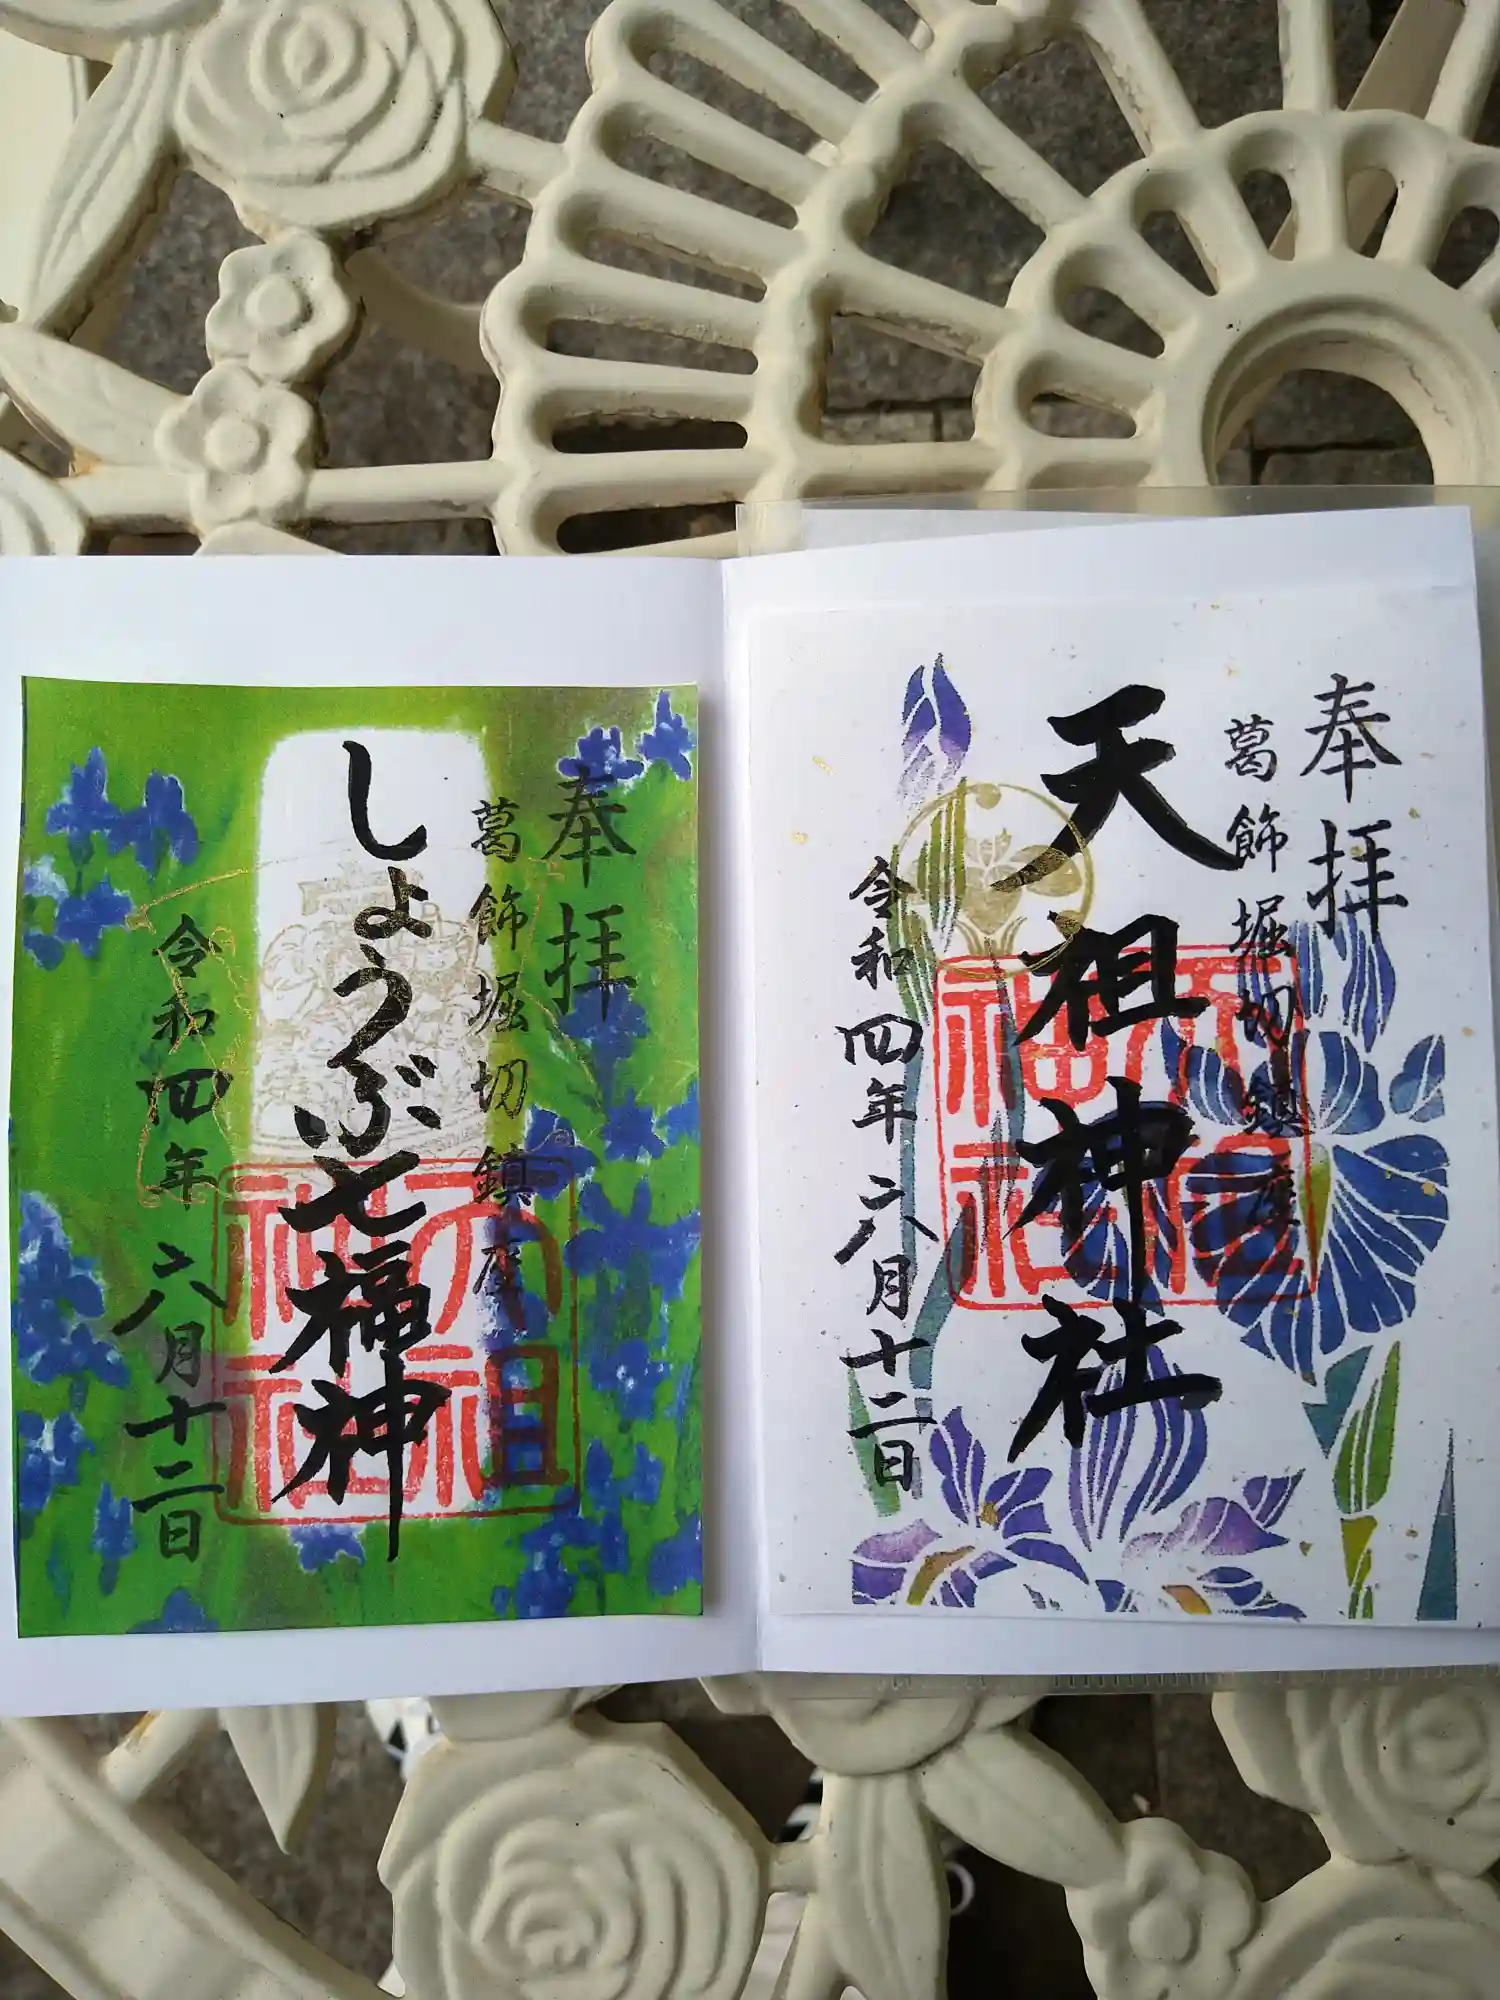 奉拝
葛飾堀切鎮座
天祖神社
令和四年六月十二日
天祖神社
奉拝
葛飾堀切鎮座
しょうぶ七福神
令和四年六月十二日
天祖神社